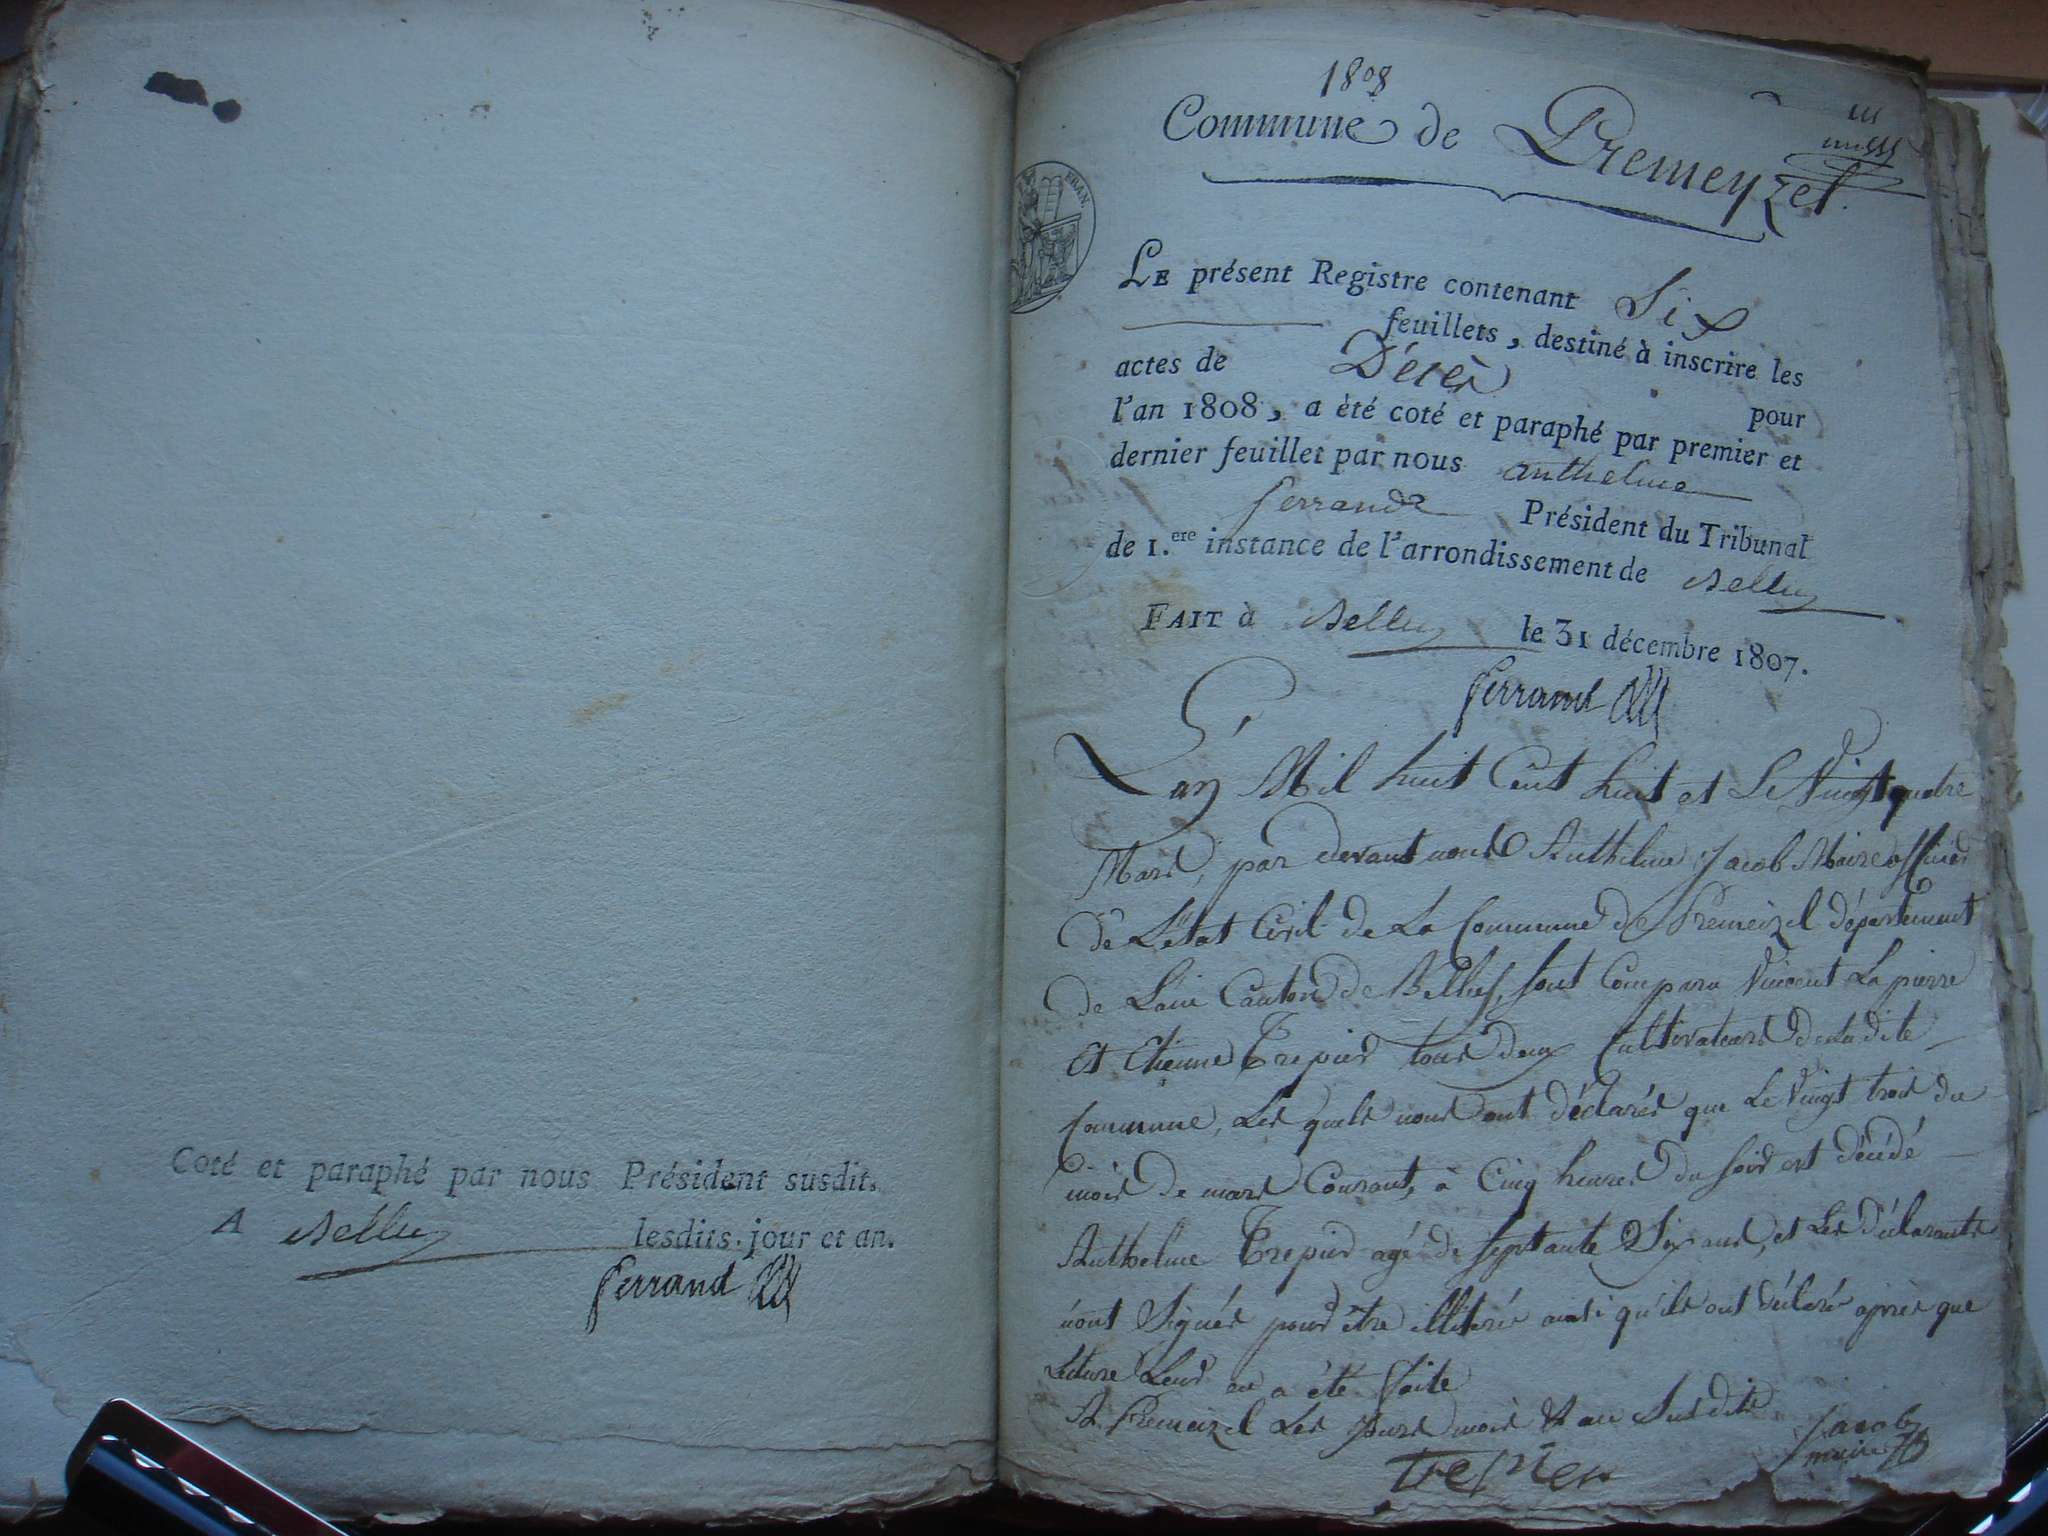 Coté et paraphé par nous Président susdit.
A Belley lesdits jour et an.
Ferrand
1808
Commune de Premeyzel.
FRAN.
LE présent Registre contenant Six
feuillets, destiné à inscrire les
actes de Décès pour
l'an 1808, a èté coté et paraphé par premier et
dernier feuillet par nous anthelme
ferrand Président du Tribunal
de 1.ere instance de l'arrondissement de Belley
FAIT à Belley le 31 décembre 1807.
Ferrand
L'an Mil huit Cent huit et Le Vingt quatre
Mars, par devant nous Anthelme Jacob Maire officier
de L'état Civil de La Commune de Premeizel département
de L'ain Canton de Belley, sont Comparu Vincent La pierre
Et Etienne Trepier tous deux Cultivateurs de Ladite
Commune, Les quels nous ont déclarés que Le Vingt trois du
mois de mars Courant, à Cinq heures du soir est décédé
Anthelme Trepier agé de septante Six ans, et Les déclarants
n'ont Signés pour être illitérés ainsi qu'ils ont déclaré après que
Lecture Leur en a été faite
A Premeizel Les Jours mois & an Susdits
Jacob
maire